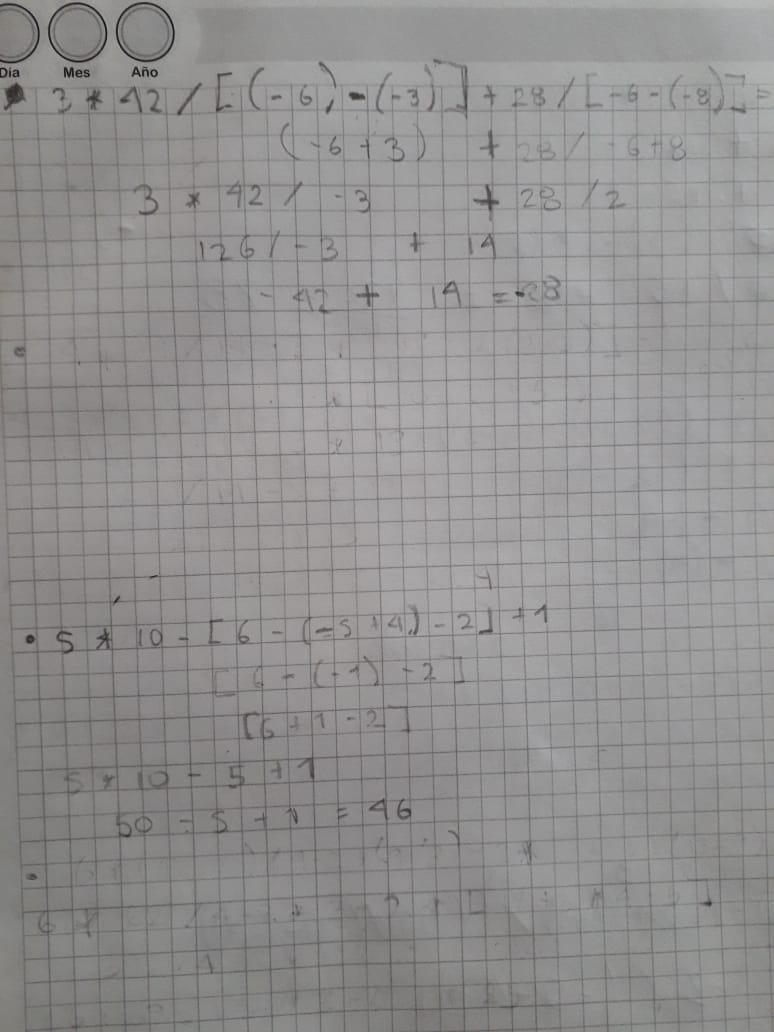 Dia Mes Año
3 * 42 / [(-6) - (-3)] + 28 / [-6-(-8)] =
(-6+3) + 28 / -6+8
3 * 42 / -3 + 28 / 2
126 / -3 + 14
-42 + 14 = -28
5 * 10 - [6 - (-5+4) - 2] + 1
[6 - (-1) - 2]
[6+1-2]
5 * 10 - 5 + 1
50 - 5 + 1 = 46